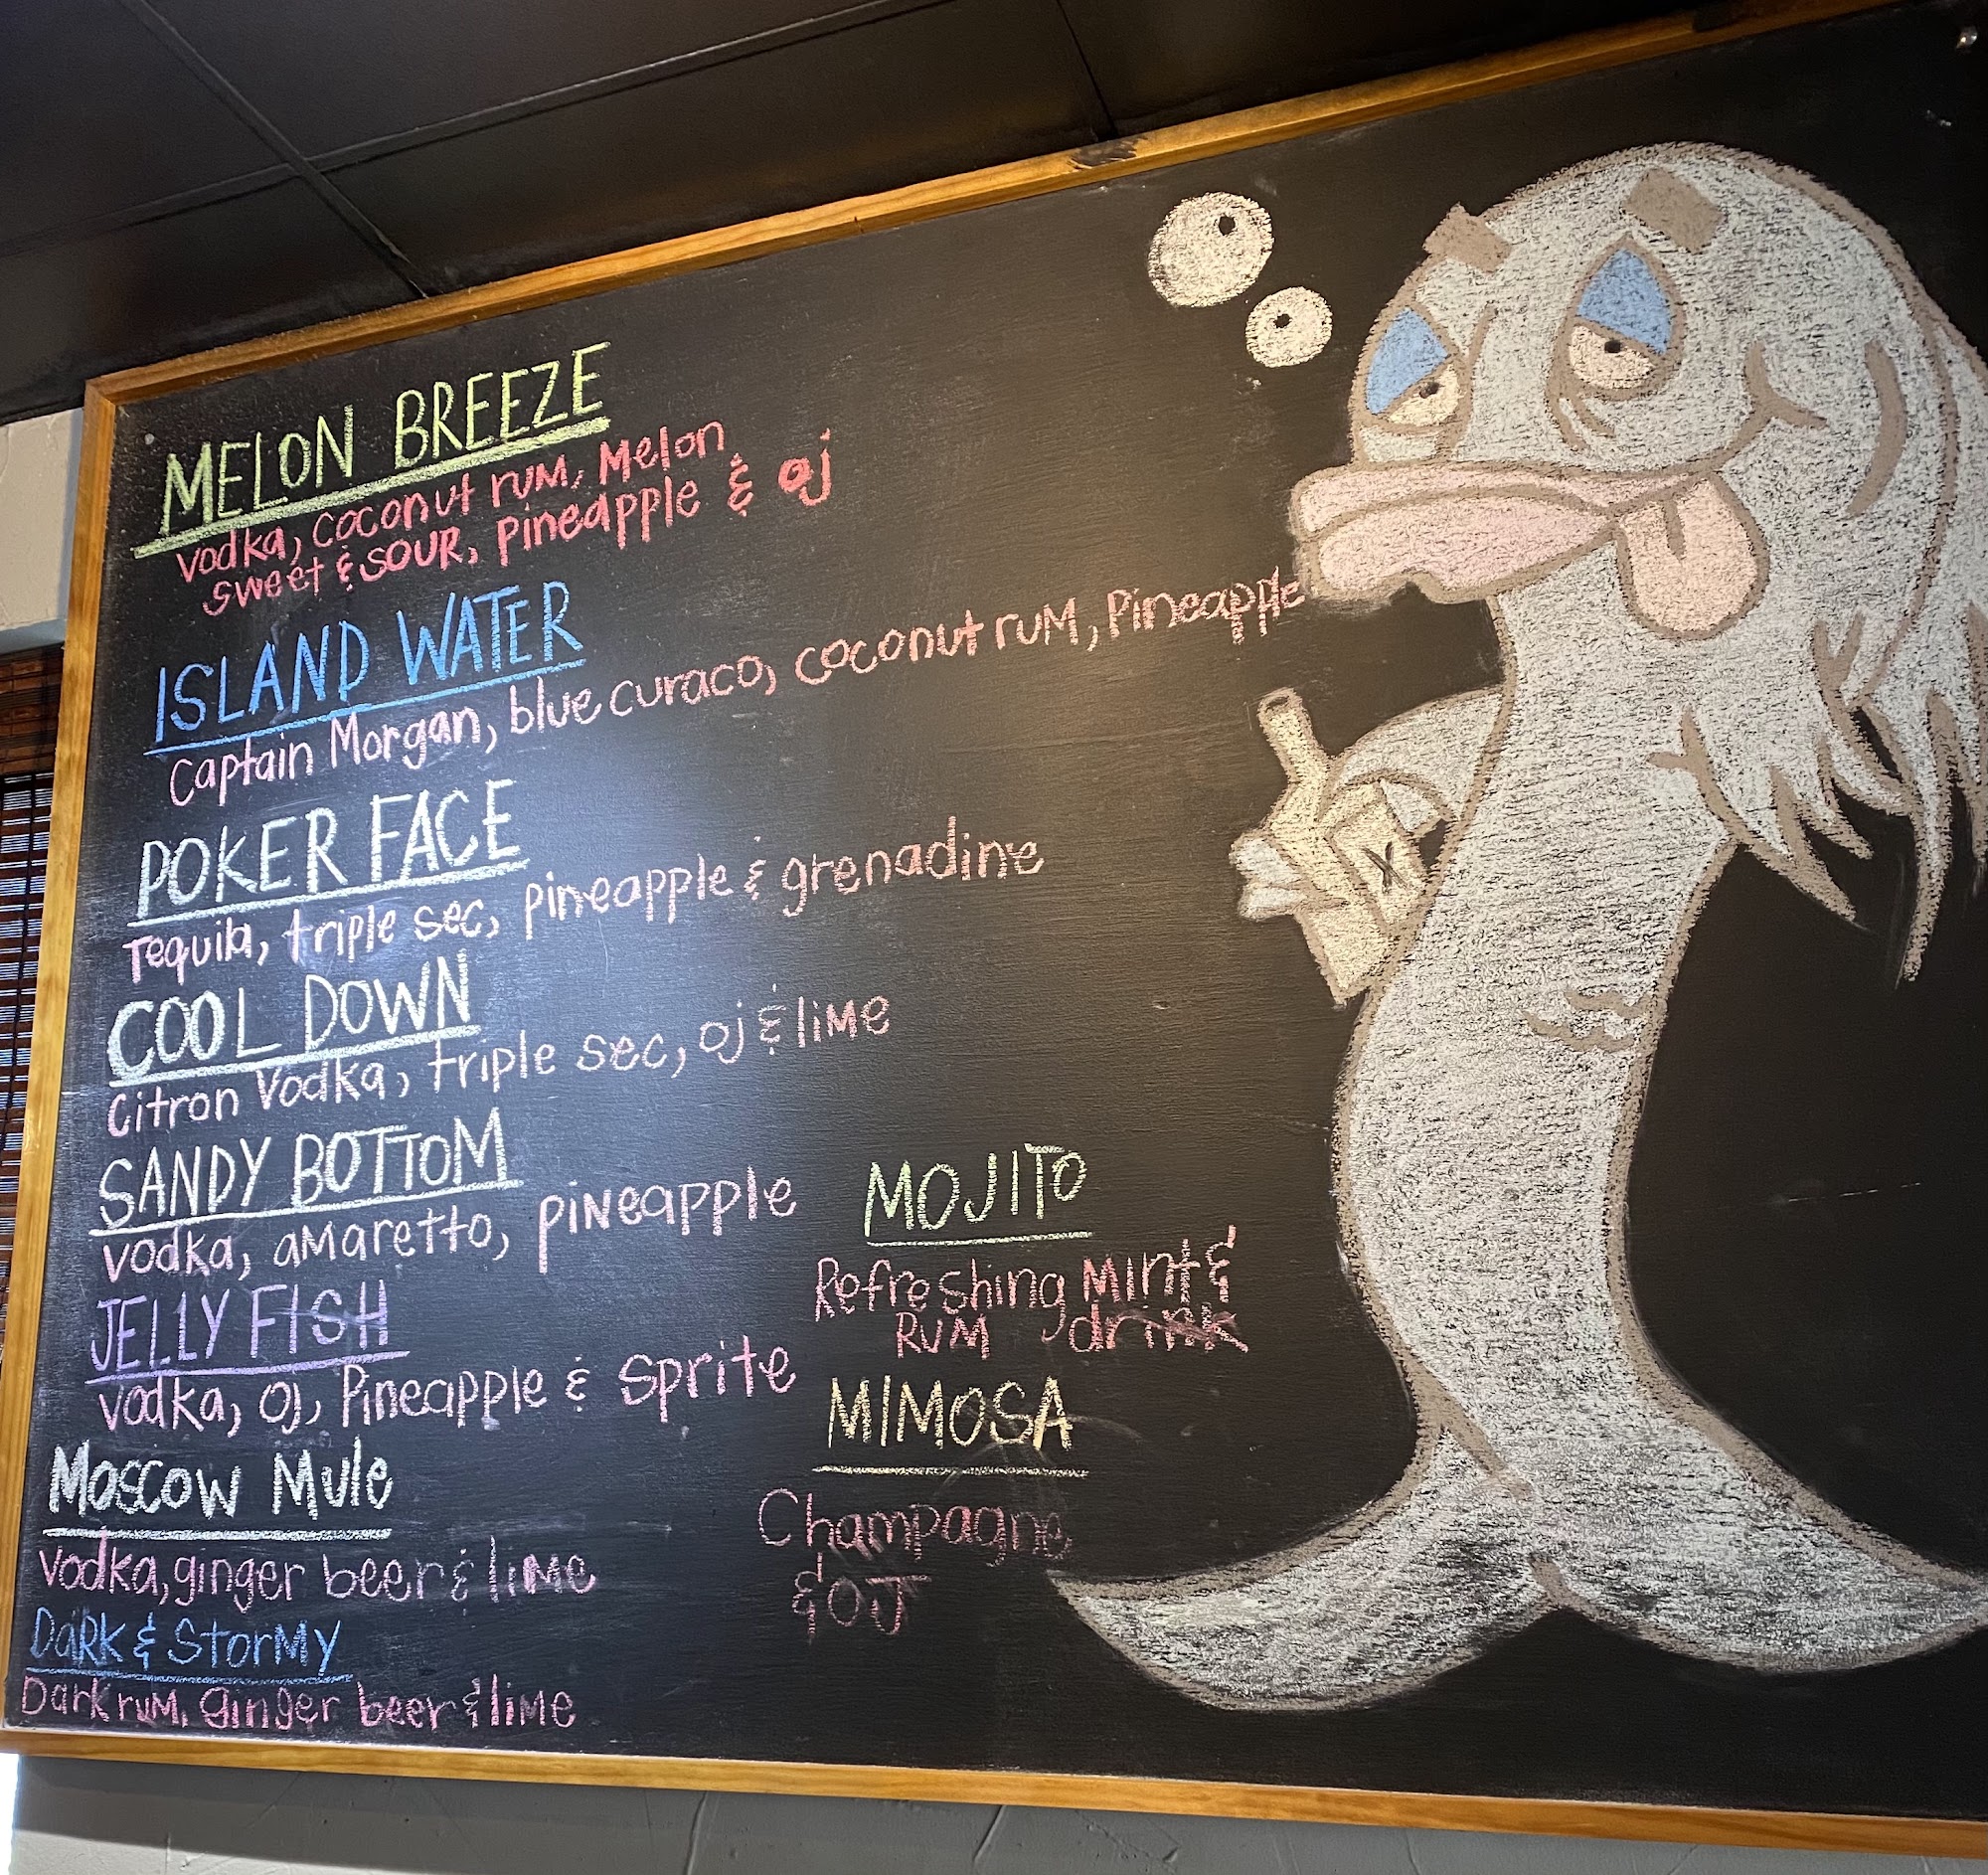 MELON BREEZE
vodka, coconut rum, Melon,
sweet & sour, pineapple & oj
ISLAND WATER
Captain Morgan, blue curaco, coconut rum, Pineapple
POKER FACE
Tequila, triple sec, pineapple & grenadine
COOL DOWN
Citron Vodka, triple sec, oj & lime
SANDY BOTTOM
vodka, amaretto, pineapple
JELLY FISH
vodka, oj, Pineapple & Sprite
Moscow Mule
vodka, ginger beer & lime
Dark & Stormy
Dark rum, ginger beer & lime
MOJITO
Refreshing Mint &
Rum drink
MIMOSA
Champagne
& OJ
X